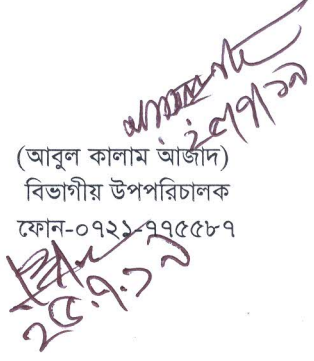 ২৫/৭/১৯
(আবুল কালাম আজাদ)
বিভাগীয় উপপরিচালক
ফোন-০৭২১-৭৭৫৫৮৭
২৫.৭.১৯